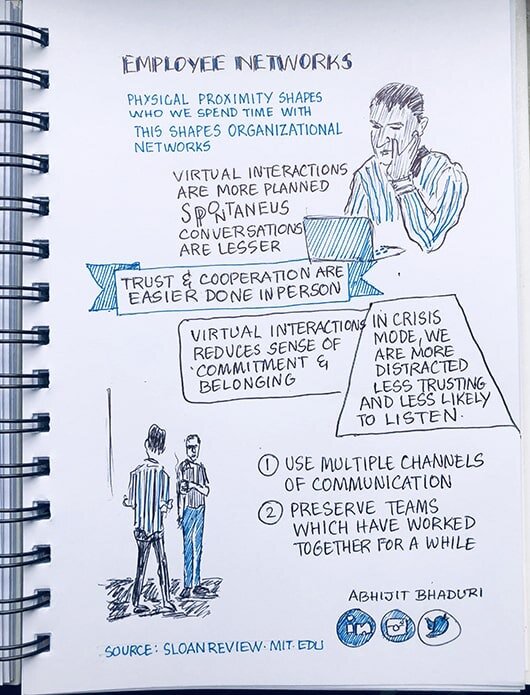 EMPLOYEE NETWORKS
PHYSICAL PROXIMITY SHAPES
WHO WE SPEND TIME WITH
THIS SHAPES ORGANIZATIONAL
NETWORKS
VIRTUAL INTERACTIONS
ARE MORE PLANNED
SPONTANEUS
CONVERSATIONS
ARE LESSER
TRUST & COOPERATION ARE
EASIER DONE IN PERSON
VIRTUAL INTERACTIONS
REDUCES SENSE OF
COMMITMENT &
BELONGING
IN CRISIS
MODE, WE
ARE MORE
DISTRACTED
LESS TRUSTING
AND LESS LIKELY
TO LISTEN.
1 USE MULTIPLE CHANNELS
OF COMMUNICATION
2 PRESERVE TEAMS
WHICH HAVE WORKED
TOGETHER FOR A WHILE
ABHIJIT BHADURI
in
SOURCE: SLOANREVIEW.MIT.EDU